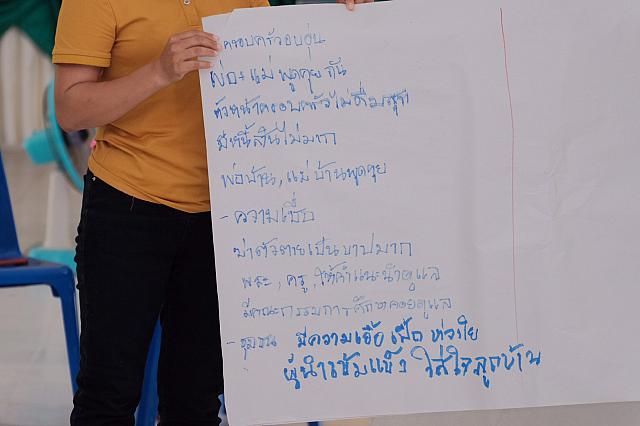 ครอบครัวอบอุ่น
พ่อ+แม่ พูดคุย กัน
หัวหน้าครอบครัวไม่ดื่มสุรา
มีหนี้สินไม่มาก
พ่อบ้าน, แม่บ้านพูดคุย
- ความเชื่อ
ฆ่าตัวตายเป็นบาปมาก
พระ, ครู, ให้คำแนะนำดูแล
มีคณะกรรมการ คอยดูแล
- ชุมชน มีความเอื้อ เฟื้อ ห่วงใย
ผู้นำเข้มแข็ง ใส่ใจลูกบ้าน